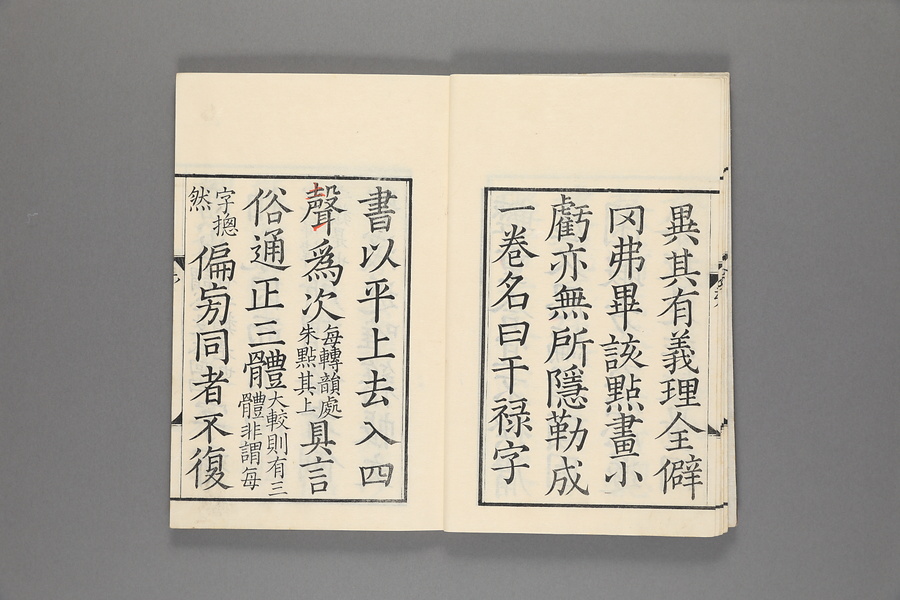 異其有義理全僻
冈弗畢該點畫小
虧亦無所隱勒成
一卷名曰干禄字
書以平上去入四
聲為次每轉韻處朱點其上具言
俗通正三體大較則有三體非謂每
字摠然偏旁同者不復